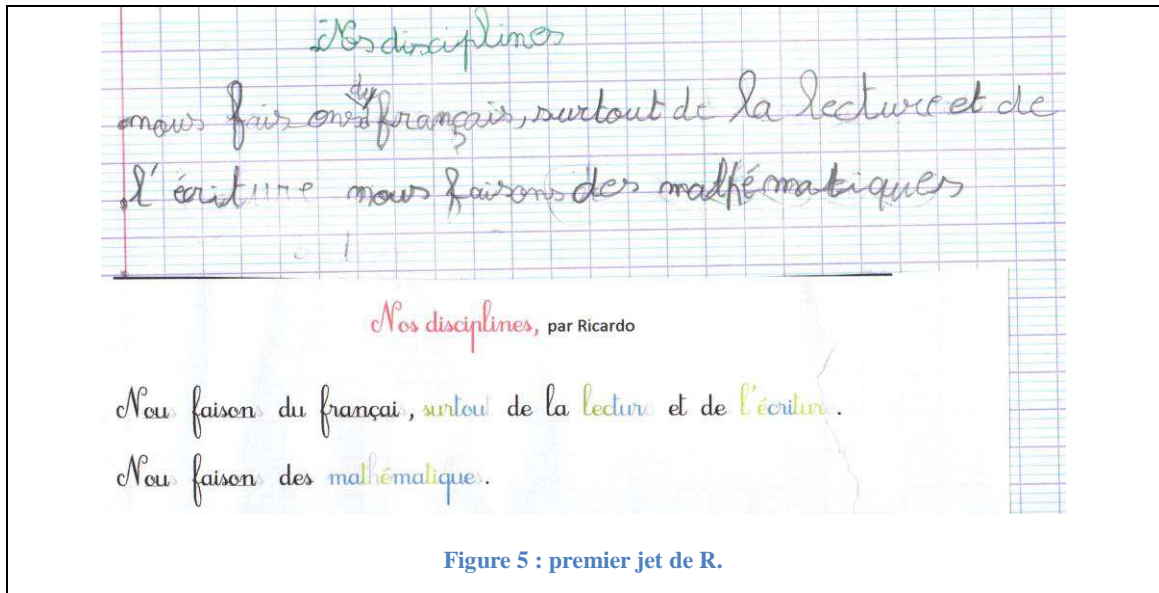 Nos disciplines
du
nous fais ons français, surtout de la lecture et de
l'écriture nous faisons des mathématiques
Nos disciplines, par Ricardo
Nous faisons du français, surtout de la lecture et de l'écriture.
Nous faisons des mathématiques.
Figure 5 : premier jet de R.